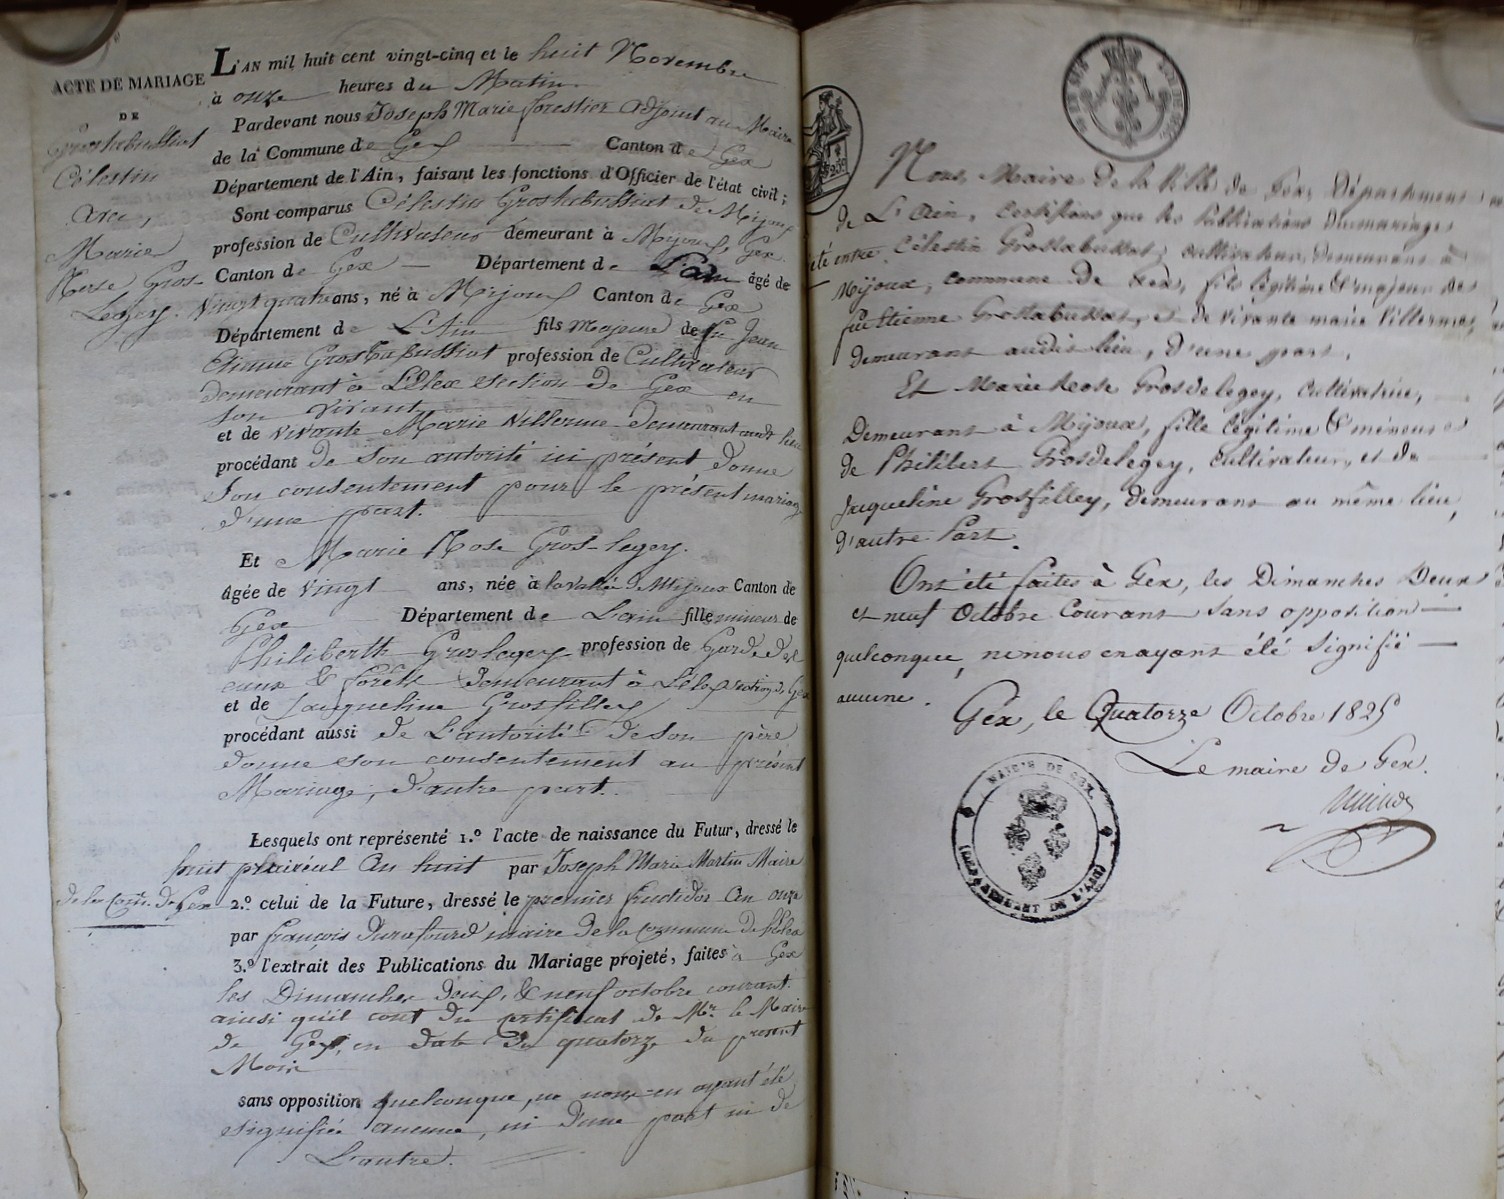 ACTE DE MARIAGE
DE
Célestin
avec,
Marie
Rose Gros-
Legey.
L'AN mil huit cent vingt-cinq et le huit Novembre
à onze heures du Matin
Pardevant nous Joseph Marie forestier adjoint au Maire
de la Commune de Gex Canton de Gex
Département de l'Ain, faisant les fonctions d'Officier de l'état civil;
Sont comparus Célestin Grostabussiat de Mijoux
profession de Cultivateur demeurant à Mijoux, Gex
Canton de Gex Département de L'ain âgé de
vingt quatre ans, né à Mijoux Canton de Gex
Département de L'Ain fils Majeur de feu Jean
Etienne Grostabussiat profession de Cultivateur
demeurant à Lélex section de Gex en
son vivant
et de vivante Marie Villerme demeurant audt lieu
procédant de son autorité ici présent donne
son consentement pour le présent mariage
d'une part.
Et Marie Rose Gros-legey.
âgée de vingt ans, née à la vallée de Mijoux Canton de
Gex Département de L'ain fille mineur de
Philiberth Groslegey profession de Garde des
eaux & forêts demeurant à Lélex section de Gex
et de Jacqueline Grosfilley
procédant aussi de L'autorité de son père
donne son consentement au présent
Mariage, d'autre part.
Lesquels ont représenté 1.º l'acte de naissance du Futur, dressé le
huit plairéal an huit par Joseph Marie Martin Maire
de la Com. de Gex 2.º celui de la Future, dressé le premier fructidor an onze
par françois durafourd maire de la commune de Lélex
3.º l'extrait des Publications du Mariage projeté, faites à Gex
les Dimanches deux, & neuf octobre courant.
ainsi qu'il cont du certificat de Mr. le Maire
de Gex, en date du quatorze du present
Mois
sans opposition quelconque, ne nous en ayant été
signifiée aucune, ni d'une part ni de
L'autre.
Nous, Maire de la Ville de Gex, Département
de L'Ain, certifions que les Publications du mariage
été entre Célestin Grostabussat, cultivateur, demeurant à
Mijoux, commune de Gex, fils légitime & majeur de
feu Etienne Grostabussat, et de vivante marie Villerme,
demeurans audit lieu, d'une part,
Et Marie Rose Grosdelegey, cultivatrice,
Demeurant à Mijoux, fille légitime & mineure
de Philibert Grosdelegey, cultivateur, et de
Jacqueline Grosfilley, demeurans au même lieu,
d'autre Part.
Ont été faites à Gex, les Dimanches Deux
et neuf Octobre Courant sans opposition
quelconque, ne nous en ayant été signifié
aucune.
Gex, le Quatorze Octobre 1825
Le maire de Gex.
MAIRIE DE GEX.
(DEPARTEMENT DE L'AIN)